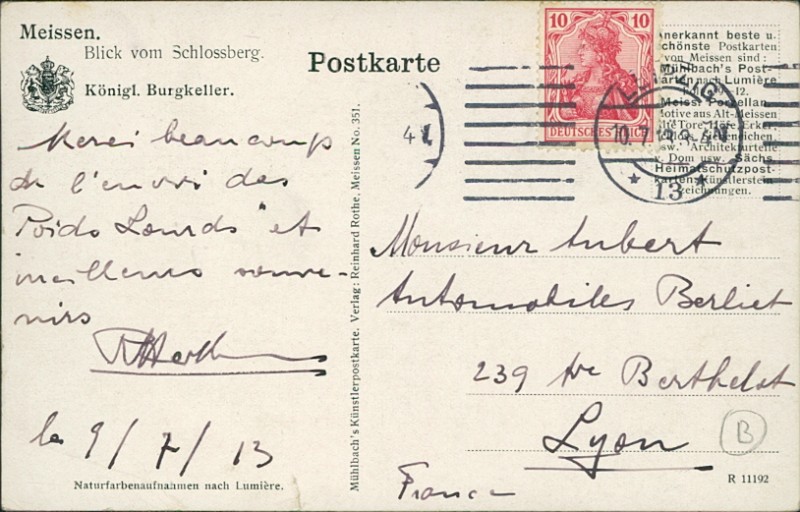 Meissen.
Blick vom Schlossberg.
Königl. Burgkeller.
Postkarte
Merci beaucoup
de l'envoi des
Poids Lourds" et
meilleurs souve-
nirs
le 9/7/13
Naturfarbenaufnahmen nach Lumière.
Mühlbach's Künstlerpostkarte. Verlag: Reinhard Rothe, Meissen No. 351.
10 10
DEUTSCHES REICH
Anerkannt beste u.
schönste Postkarten
von Meissen sind:
Mühlbach's Post-
karten nach Lumière
Meiss. Porzellan
Motive aus Alt-Meissen
Tore, Höfe, Erker,
usw. Architekturteile
v. Dom usw. Sächs
Heimatschutzpost-
karten. Künstlerstein
zeichnungen.
* 13 *
Monsieur Aubert
Automobiles Berliet
239 Berthelot
Lyon
France
B
R 11192